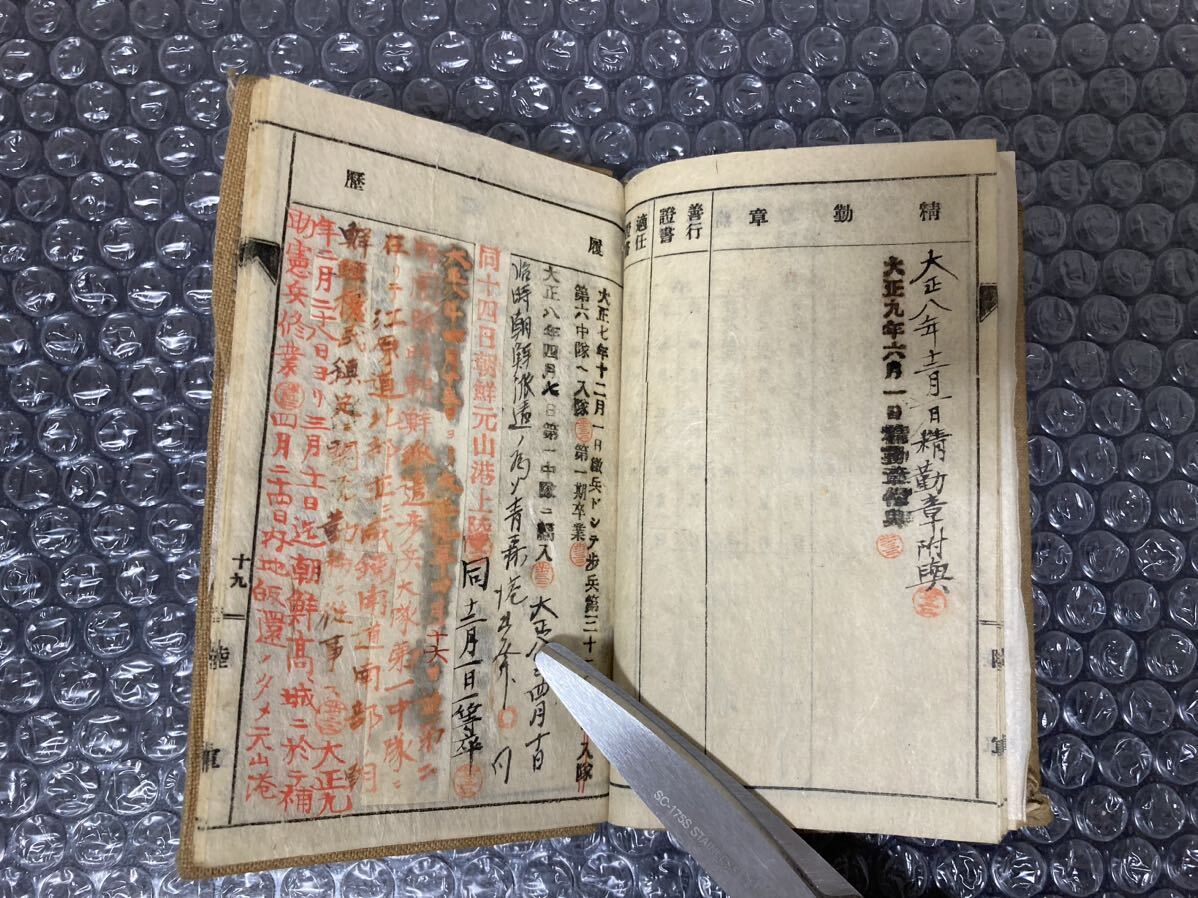 精勤章
善行證書
適任
大正八年十二月一日精勤章附與
大正九年六月一日精勤章
陸軍
履歷
大正七年十二月一日徵兵トシテ步兵第三十一
入隊
第六中隊ヘ入隊 第一期卒業
大正八年四月七日第一中隊ニ編入 大正八年四月十日
臨時朝鮮派遣ノ為メ青森港出帆 同
同十四日朝鮮元山港上陸 同十二月一日一等卒
大正八年四月十五日ヨリ大正九年四月十六日
朝鮮派遣步兵大隊第一中隊ニ
在リテ江原道北部並ニ咸鏡南道南部朝
鮮 鎮定 從事 大正九
年二月二十八日ヨリ三月十日迄朝鮮高城ニ於テ補
助憲兵修業 四月二十四日內地皈還ノタメ元山港
十九
陸軍
SC-175S STAINLESS